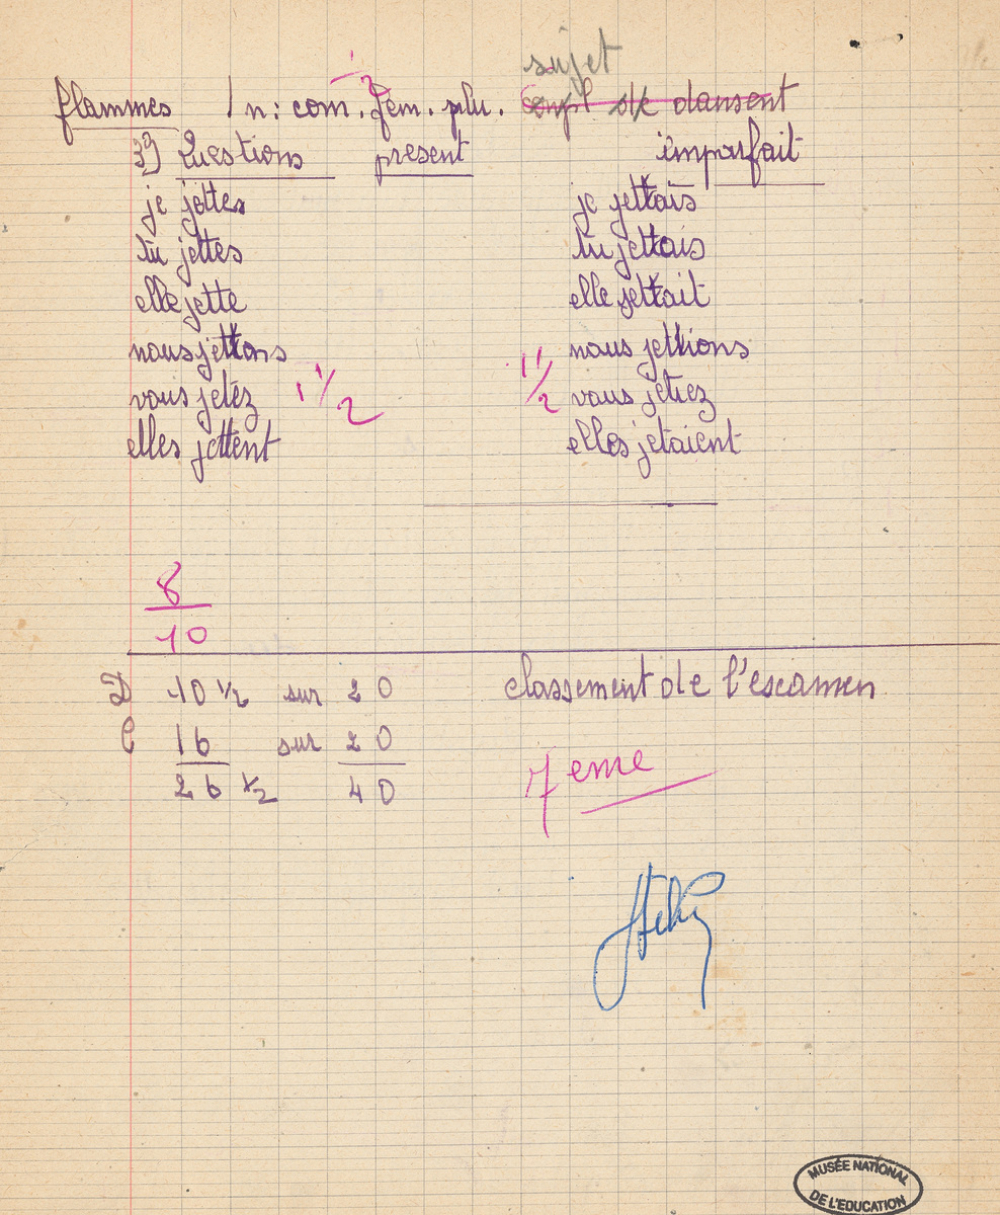 sujet
1/2
flammes / n: com. fem. plu. Compl de dansent
3°) Questions présent imparfait
je jettes je jettais
tu jettes tu jettais
elle jette elle jettait
nous jettons nous jettions
vous jetez 1 1/2 1 1/2 vous jetiez
elles jettent elles jetaient
8
10
D 10 1/2 sur 20 classement de l'escamen
C 16 sur 20
26 1/2 40
7 eme
MUSÉE NATIONAL
DE L'EDUCATION